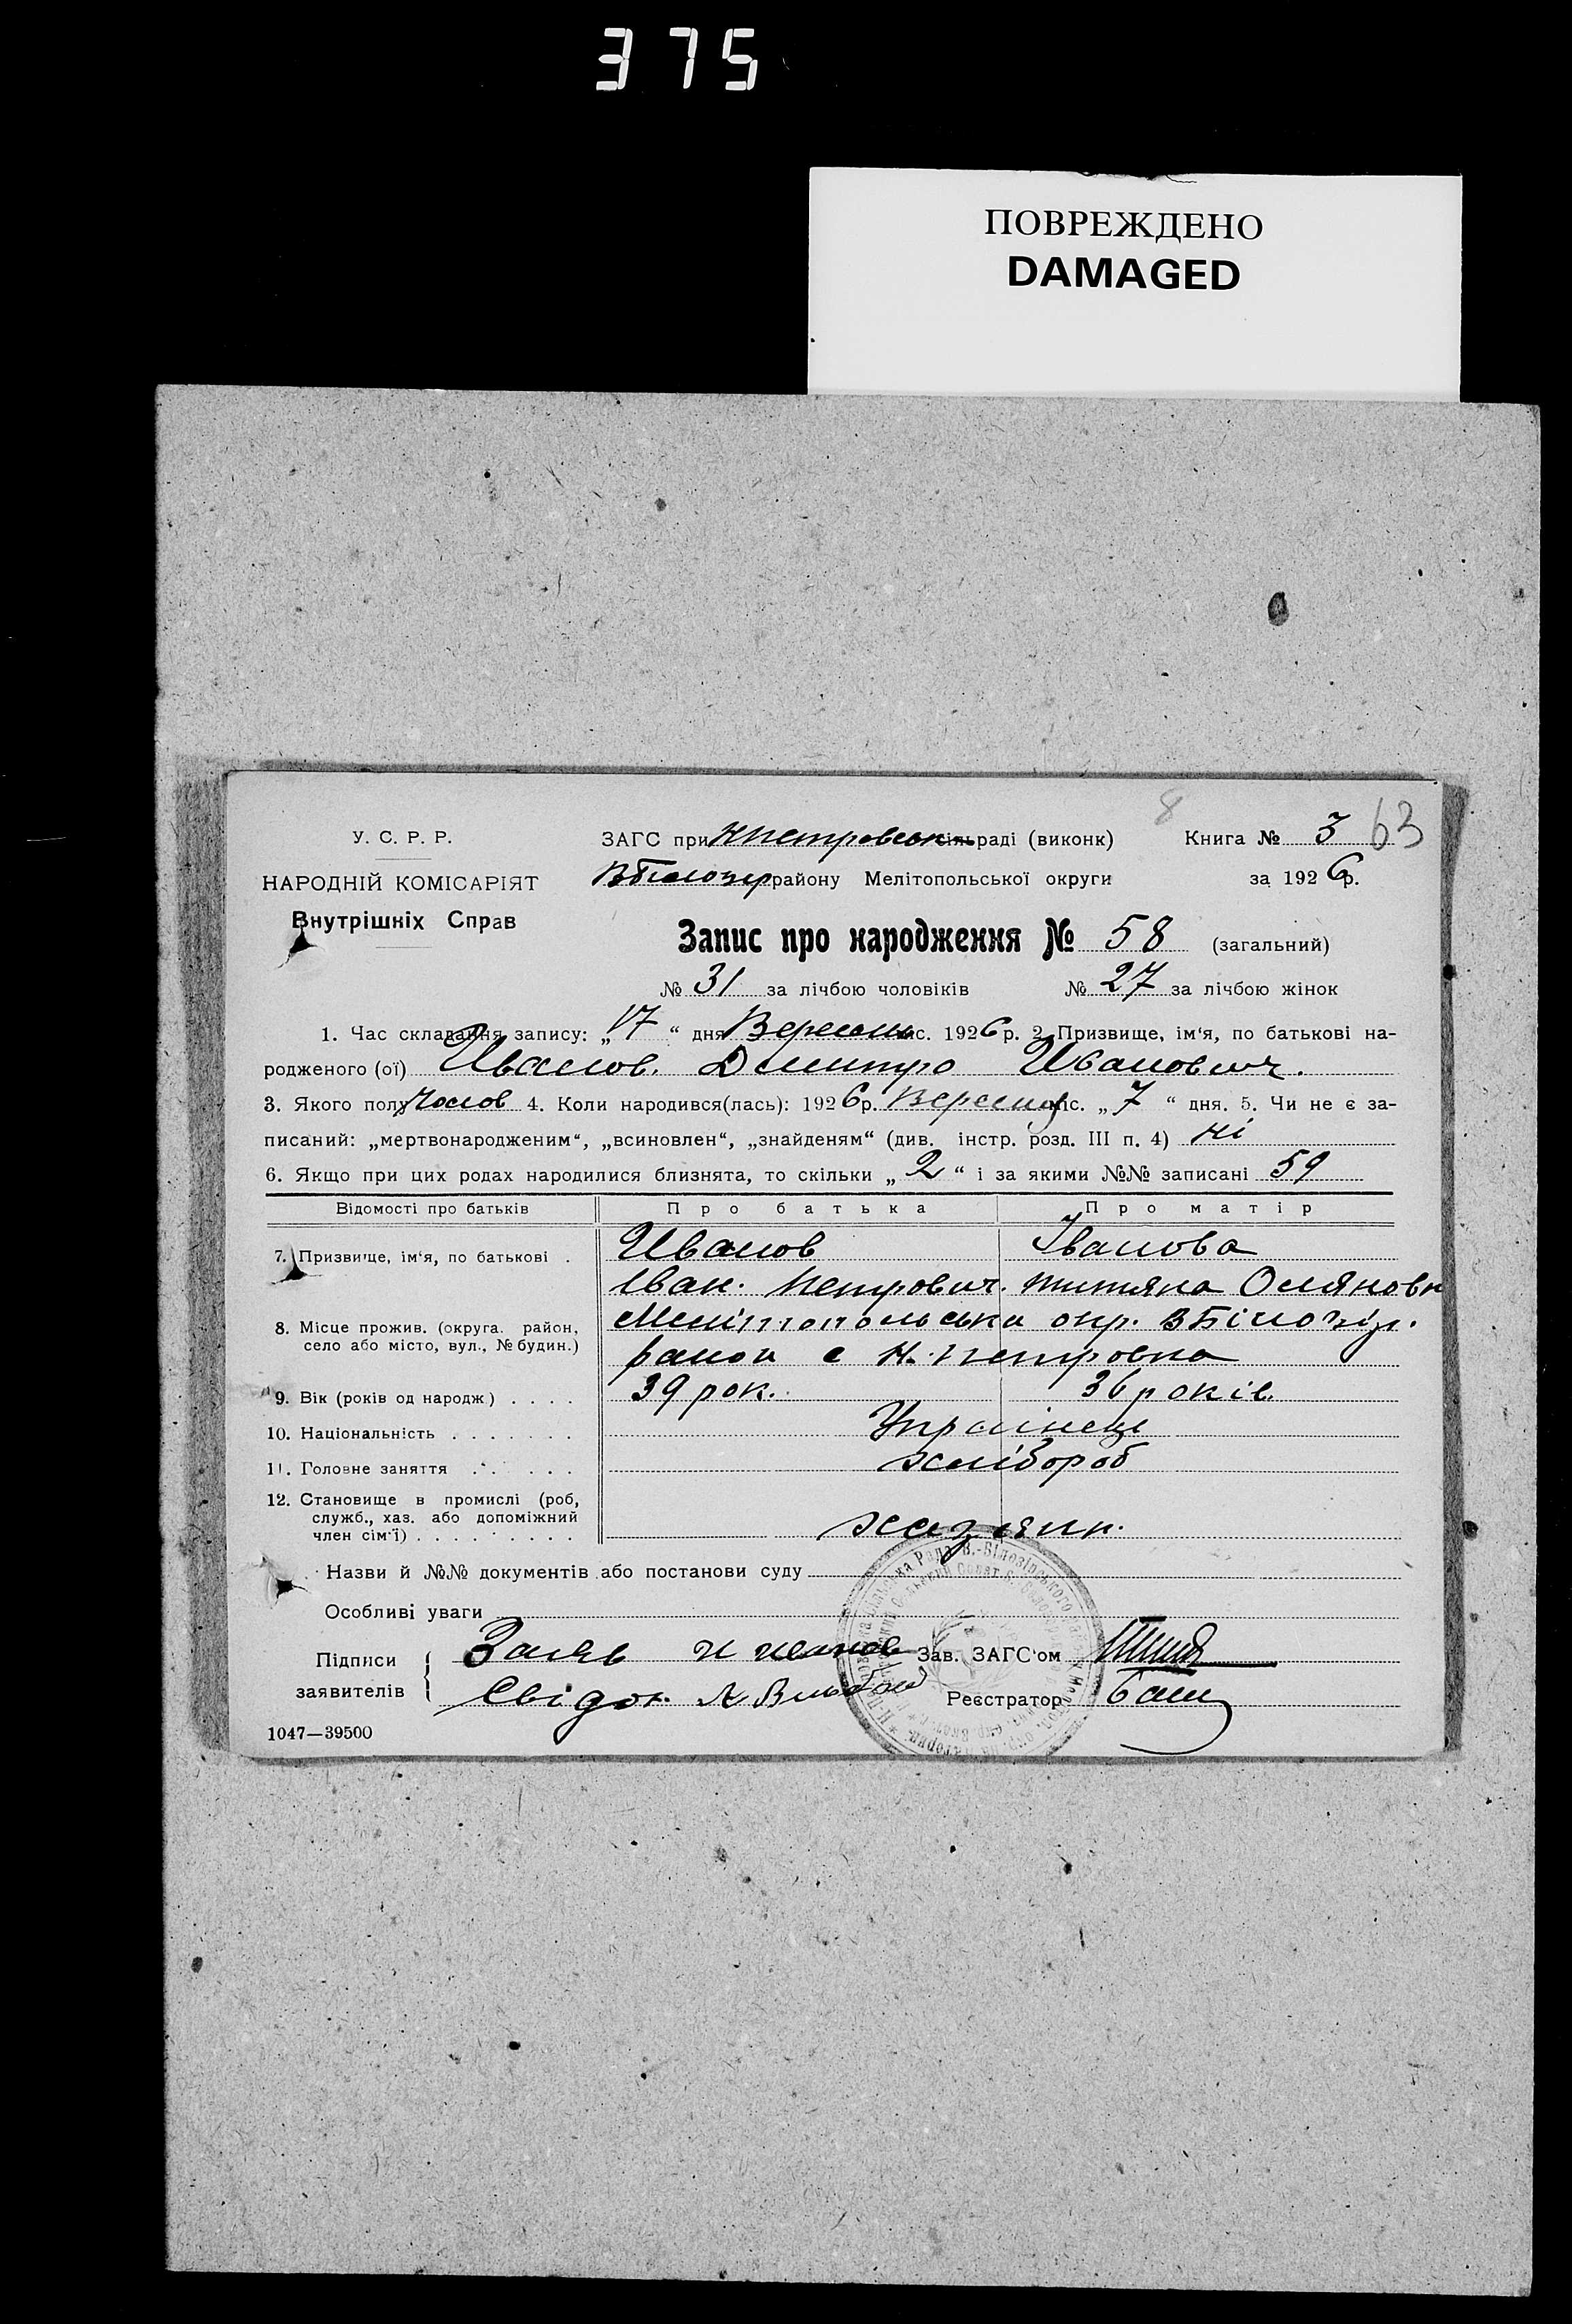 375
ПОВРЕЖДЕНО
DAMAGED
8
63
У. С. Р. Р.
НАРОДНІЙ КОМІСАРІЯТ
Внутрішніх Справ
ЗАГС при НПетровськ сільраді (виконк) Книга № 3
ВБілозер району Мелітопольської округи за 1926 р.
Запис про народження № 58 (загальний)
№ 31 за лічбою чоловіків № 27 за лічбою жінок
1. Час складання запису: „17“ дня Вересня міс. 1926 р. 2. Призвище, ім‘я, по батькові на-
родженого (ої) Иванов. Дмитро Иванович.
3. Якого полу Чолов 4. Коли народився(лась): 1926 р. Вересня міс. „7“ дня. 5. Чи не є за-
писаний: „мертвонародженим“, „всиновлен“, „знайденям“ (див. інстр. розд. III п. 4) ні
6. Якщо при цих родах народилися близнята, то скільки „2“ і за якими №№ записані 59
Відомості про батьків Про батька Про матір
7. Призвище, ім‘я, по батькові . Иванов Іванова
Іван. Петрович. Титяна
8. Місце прожив. (округа. район, село або місто, вул., № будин.) Мелітопольська окр. ВБілозір.
район с Н. Петровка
9. Вік (років од народж) . . . . 39 рок. 36 років.
10. Національність . . . . . . . Українець
11. Головне заняття . . . . . хлібороб
12. Становище в промислі (роб, служб., хаз. або допоміжний член сім‘ї) . . . . . . . . . хазяин.
Назви й №№ документів або постанови суду
Особливі уваги
Підписи заявителів
Заяв И Иванов Зав. ЗАГС‘ом
Свідок Реєстратор
1047—39500